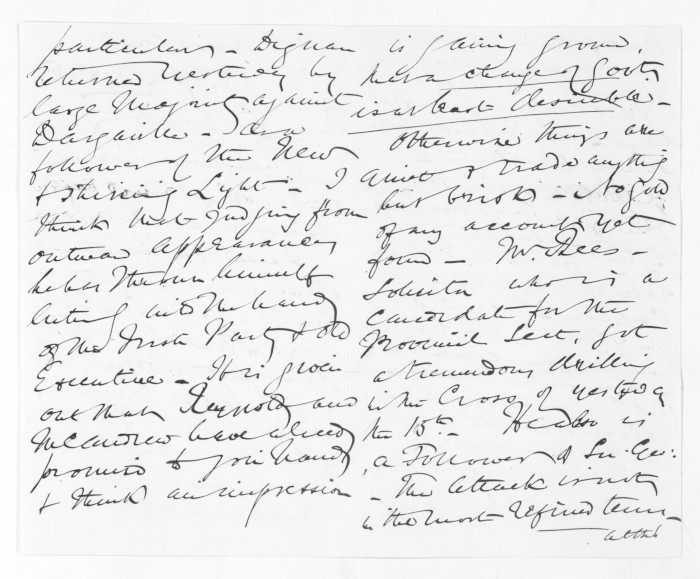 particulars - Dignan
returned yesterday by
large Majority against
Dargaville - as a
follower of the New
& Shining Light - I
think that judging from
outward appearances
he has thrown himself
entirely into the hands
of the Irish Party & old
Executive - It is given
out that Reynolds and
McAndrew have already
promised to join hands
& think an impression
is gaining ground,
that a change of Govt.
is at least desirable -
Otherwise things are
quiet & trade anything
but brisk - No gold
of any account yet
found - Mr. Rees -
Solicitor who is a
candidate for the
Provincial Seat, got
a tremendous drilling
in the Cross of yesterday
the 15th - He also is
a Follower of Sir Geo:
- The attack is not
in the most refined terms -